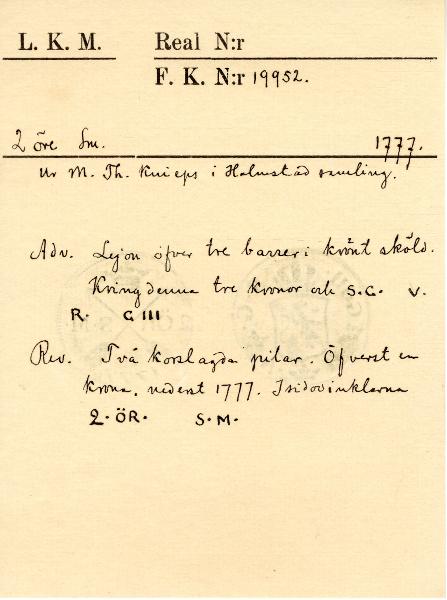 L. K. M. Real N:r
F. K. N:r 19952.
2 öre Sm. 1777.
Ur M. Th. Knieps i Halmstad samling.
Adv. Lejon öfver tre barrer i krönt sköld.
Kring denna tre kronor och S.G. V.
R. G III
Rev. Två korslagda pilar. Öfverst en
krona, nederst 1777. I sidovinklarna
2. ÖR. S.M.